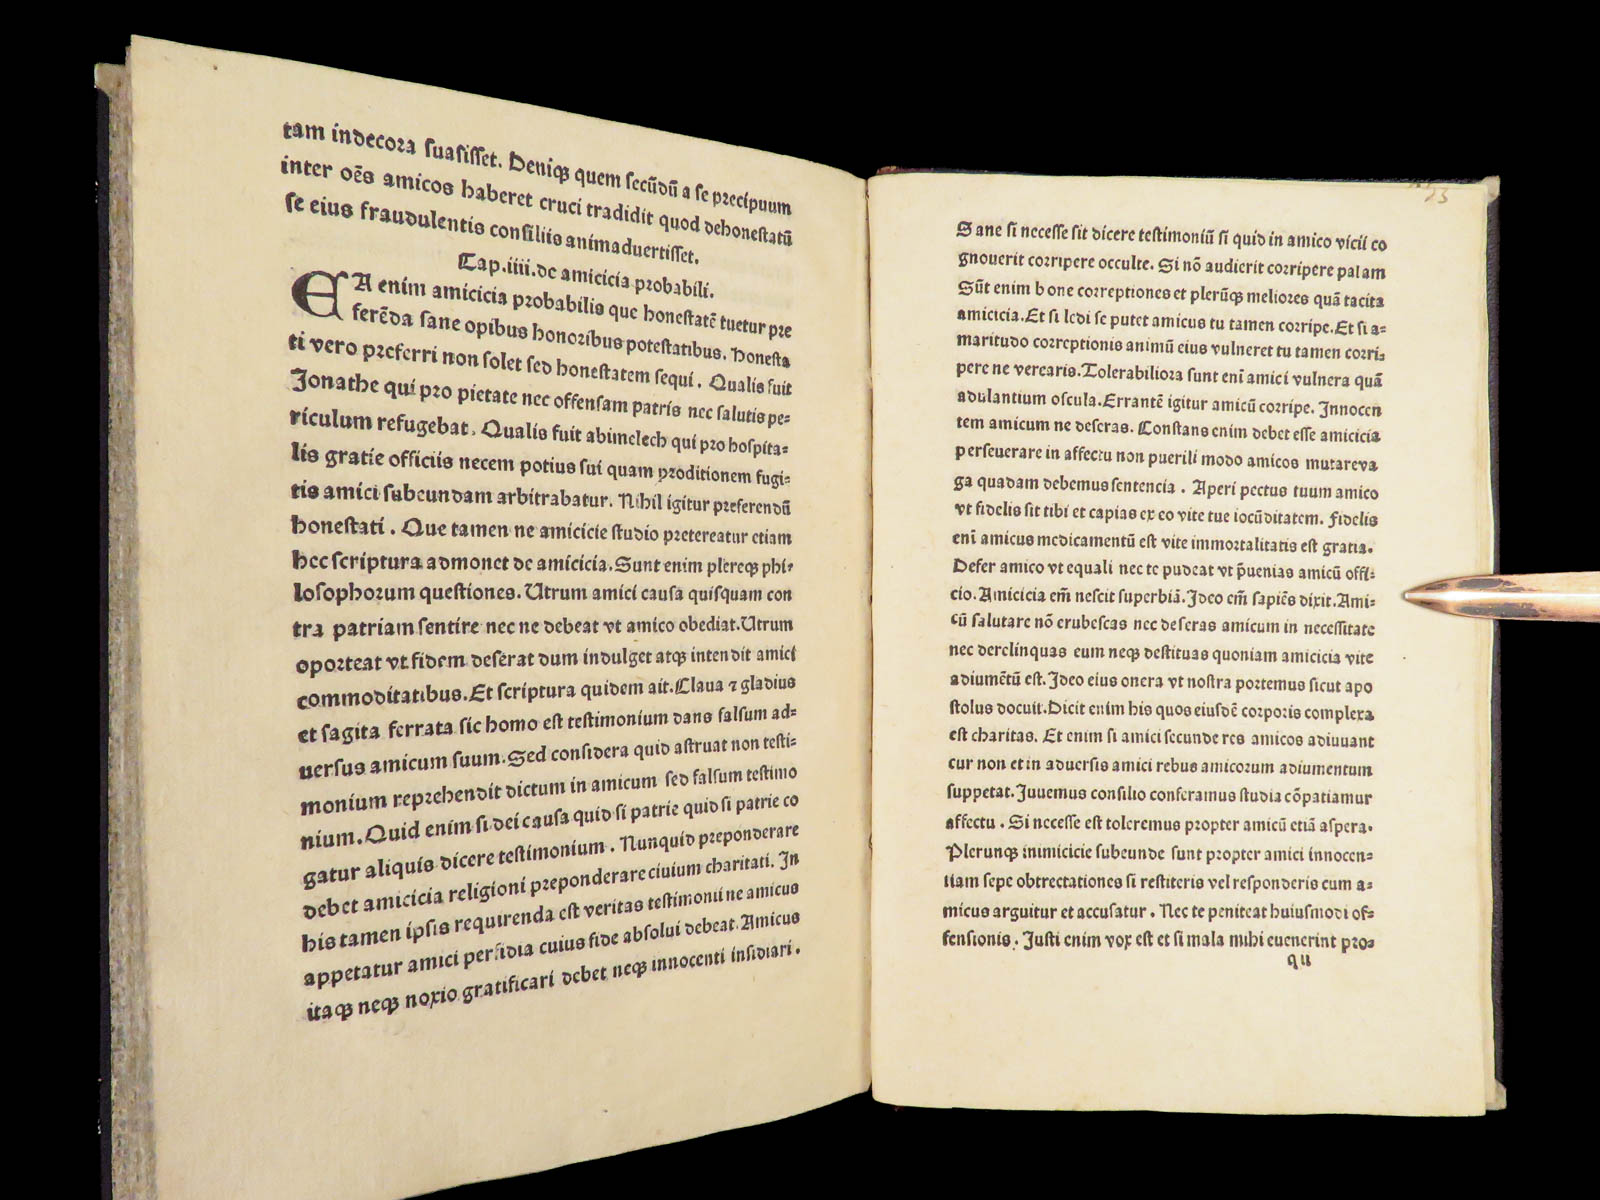 tam indecora suasisset. Deniqꝫ quem secūdū a se precipuum
inter oēs amicos haberet cruci tradidit quod dehonestatū
se eius fraudulentis consiliis animaduertisset.
Cap.iiii.de amicicia probabili.
EA enim amicicia probabilis que honestatē tuetur pre
ferēda sane opibus honoribus potestatibus. Honesta
ti vero preferri non solet sed honestatem sequi. Qualis fuit
Jonathe qui pro pietate nec offensam patris nec salutis pe-
riculum refugebat. Qualis fuit abimelech qui pro hospita-
lis gratie officiis necem potius sui quam proditionem fugi-
tis amici subeundam arbitrabatur. Nihil igitur preferendū
honestati. Que tamen ne amicicie studio pretereatur etiam
hec scriptura admonet de amicicia. Sunt enim plereqꝫ phi-
losophorum questiones. Utrum amici causa quisquam con
tra patriam sentire nec ne debeat vt amico obediat. Utrum
oporteat vt fidem deserat dum indulget atqꝫ intendit amici
commoditatibus. Et scriptura quidem ait. Claua ⁊ gladius
et sagita ferrata sic homo est testimonium dans falsum ad-
uersus amicum suum. Sed considera quid astruat non testi-
monium reprehendit dictum in amicum sed falsum testimo
nium. Quid enim si dei causa quid si patrie quid si patrie co
gatur aliquis dicere testimonium. Nunquid preponderare
debet amicicia religioni preponderare ciuium charitati. In
his tamen ipsis requirenda est veritas testimonii ne amicus
appetatur amici perfidia cuius fide absolui debeat. Amicus
itaqꝫ neqꝫ noxio gratificari debet neqꝫ innocenti insidiari.
53
Sane si necesse sit dicere testimoniū si quid in amico vicii co
gnouerit corripere occulte. Si nō audierit corripere palam
Sūt enim bone correptiones et plerūqꝫ meliores quā tacita
amicicia. Et si ledi se putet amicus tu tamen corripe. Et si a-
maritudo correptionis animū eius vulneret tu tamen corri-
pere ne verearis. Tolerabiliora sunt enī amici vulnera quā
adulantium oscula. Errantē igitur amicū corripe. Innocen
tem amicum ne deseras. Constans enim debet esse amicicia
perseuerare in affectu non puerili modo amicos mutare va
ga quadam debemus sentencia. Aperi pectus tuum amico
vt fidelis sit tibi et capias ex eo vite tue iocūditatem. Fidelis
enī amicus medicamentū est vite immortalitatis est gratia.
Defer amico vt equali nec te pudeat vt p̄uenias amicū offi-
cio. Amicicia em̄ nescit superbiā. Ideo em̄ sapiēs dixit. Ami-
cū salutare nō erubescas nec deseras amicum in necessitate
nec derelinquas eum neqꝫ destituas quoniam amicicia vite
adiumētū est. Ideo eius onera vt nostra portemus sicut apo
stolus docuit. Dicit enim his quos eiusdē corporis complexa
est charitas. Et enim si amici secunde res amicos adiuuant
cur non et in aduersis amici rebus amicorum adiumentum
suppetat. Juuemus consilio conferamus studia cōpatiamur
affectu. Si necesse est toleremus propter amicū etiā aspera.
Plerunqꝫ inimicicie subeunde sunt propter amici innocen-
tiam sepe obtrectationes si restiteris vel responderis cum a-
micus arguitur et accusatur. Nec te peniteat huiusmodi of-
fensionis. Justi enim vox est et si mala mihi euenerint pro-
qu